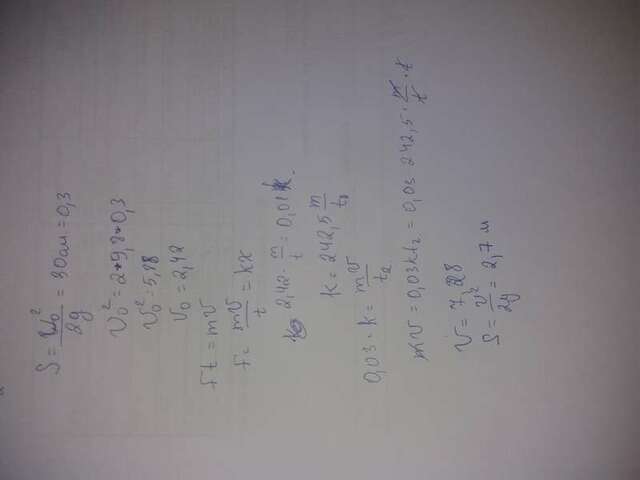 S = v₀²/2g = 30см = 0,3
v₀² = 2*9,8*0,3
v₀² = 5,88
v₀ = 2,42
Ft = mv
F = mv/t = kx
2,42 · m/t = 0,01k.
k = 242,5 m/t₂
0,03 · k = mv/t₂
mv = 0,03kt₂ = 0,03 242,5 · m/t · t
v = 7,28
S = v²/2g = 2,7 м